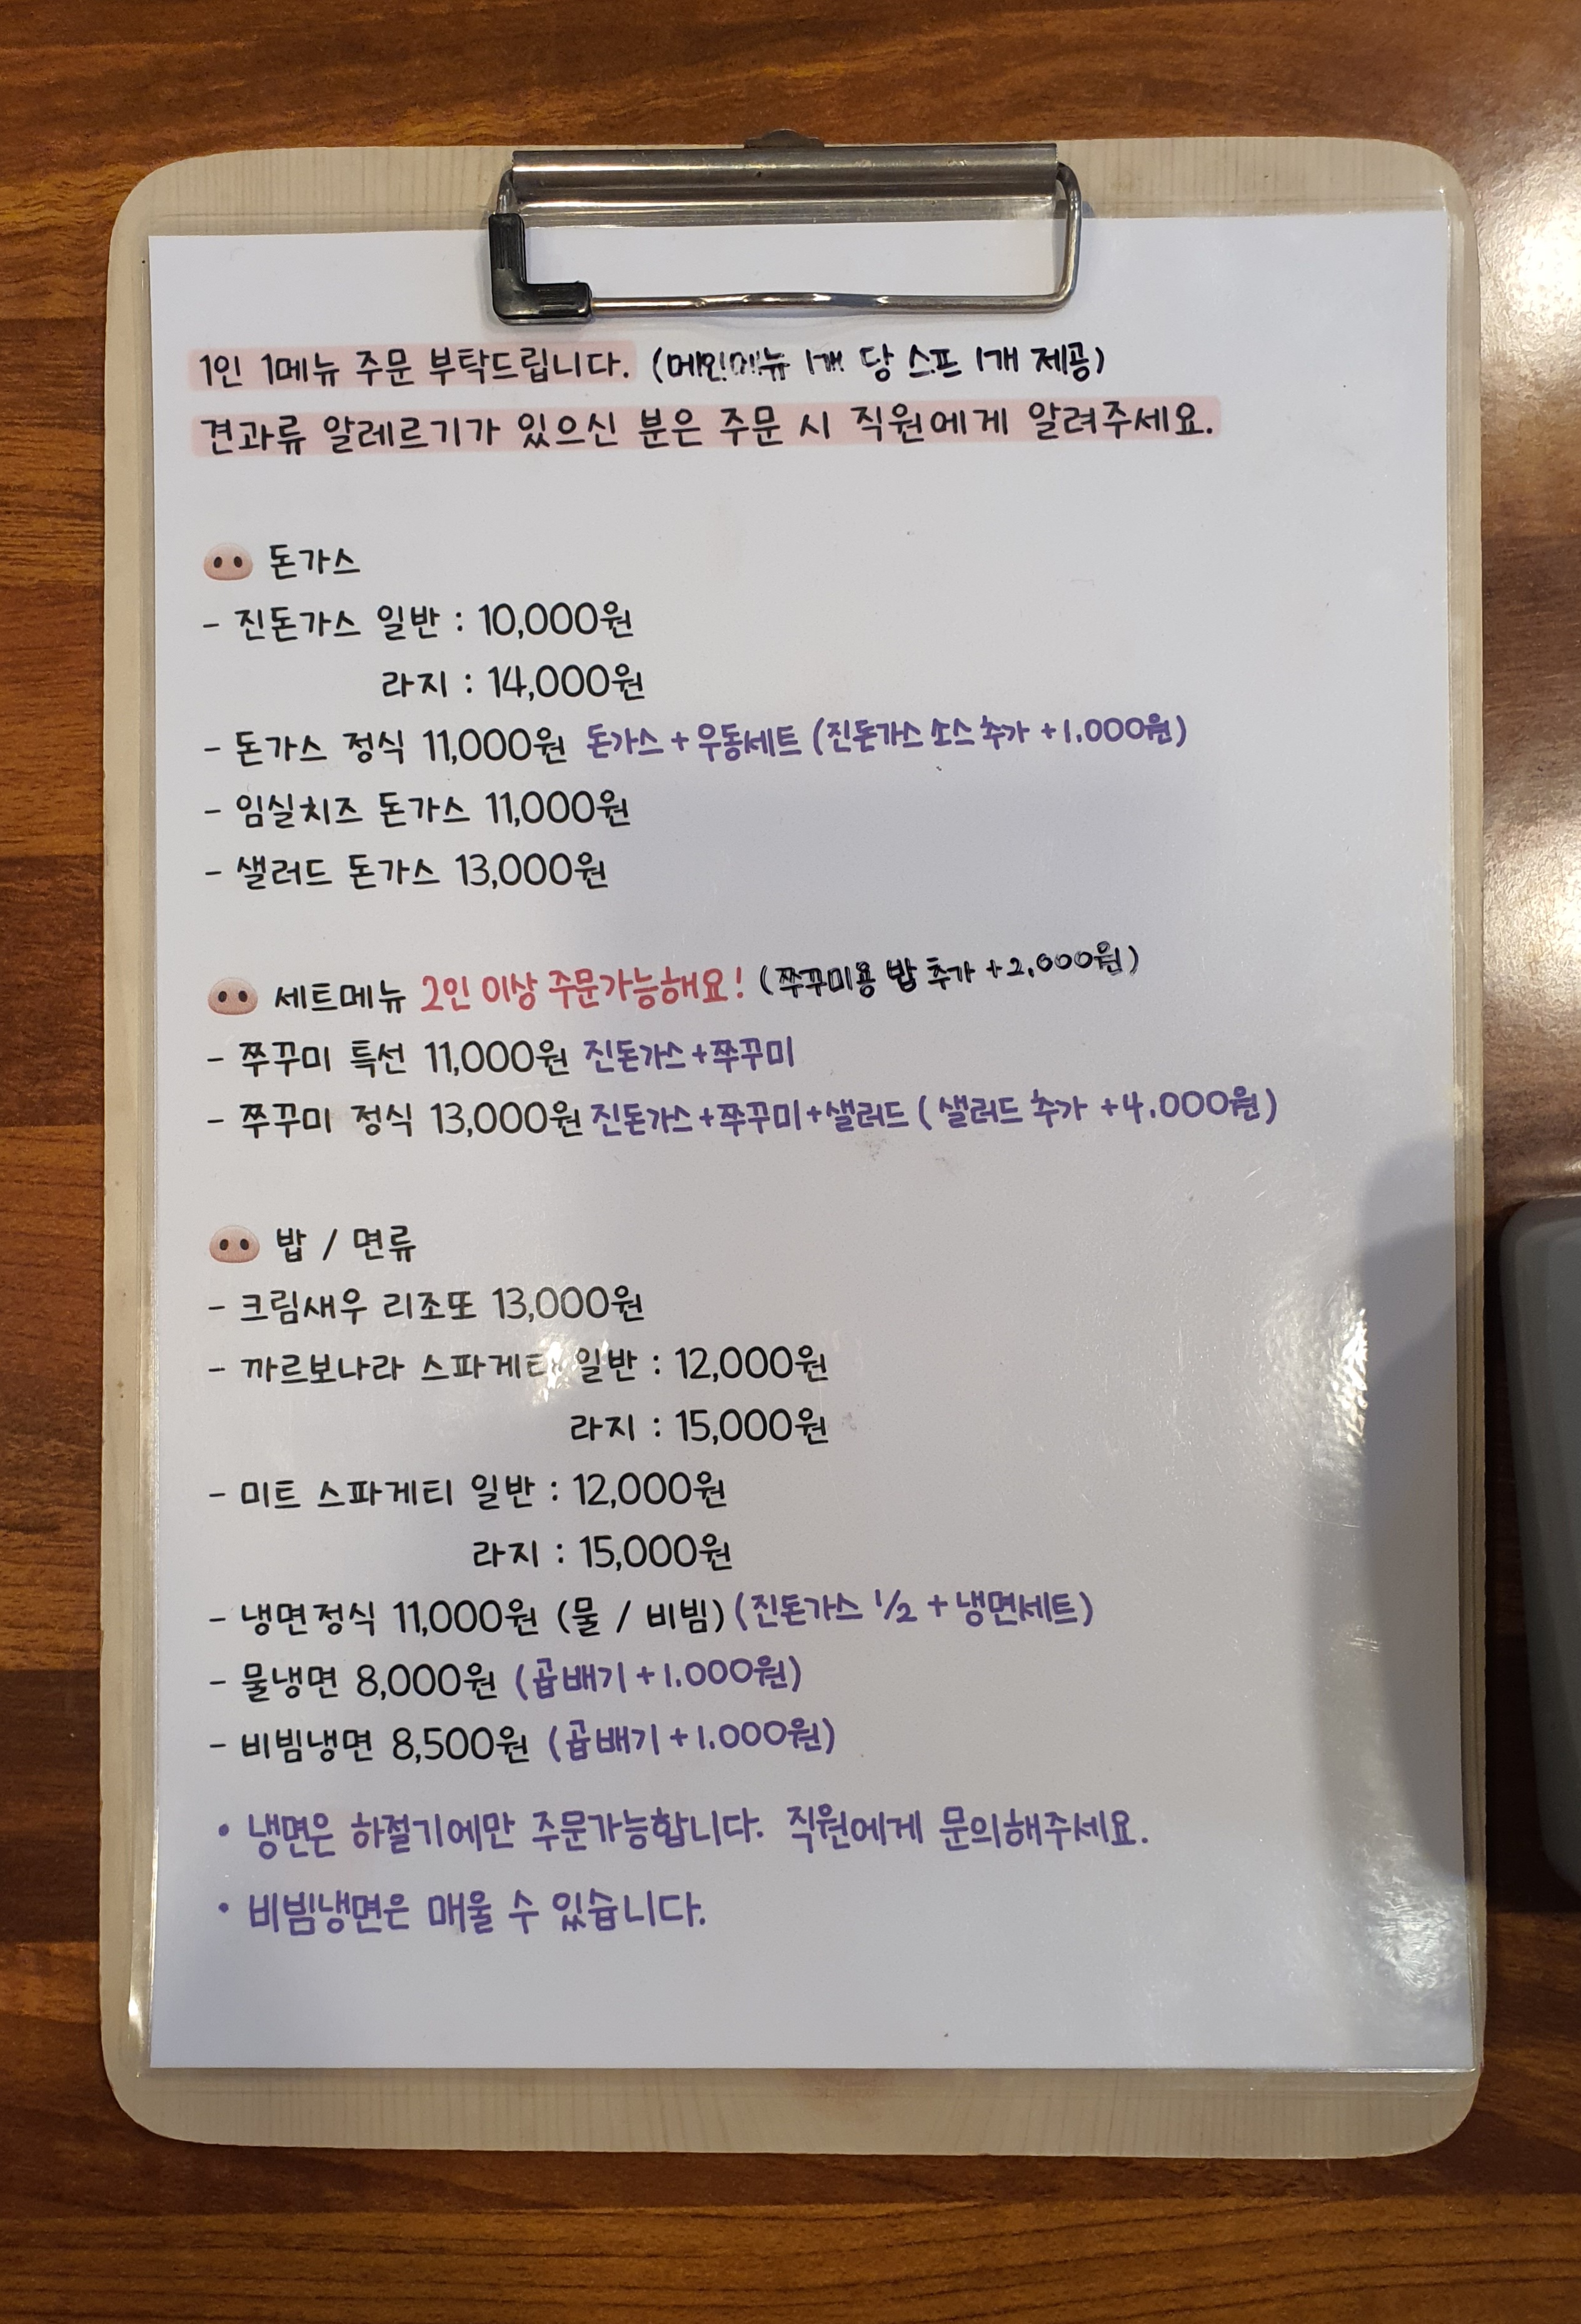 1인 1메뉴 주문 부탁드립니다. (메인메뉴 1개 당 스프 1개 제공)
견과류 알레르기가 있으신 분은 주문 시 직원에게 알려주세요.
돈가스
- 진돈가스 일반 : 10,000원
라지 : 14,000원
- 돈가스 정식 11,000원 돈가스 + 우동세트 (진돈가스 소스 추가 +1.000원)
- 임실치즈 돈가스 11,000원
- 샐러드 돈가스 13,000원
세트메뉴 2인 이상 주문가능해요! (쭈꾸미용 밥 추가 +2,000원)
- 쭈꾸미 특선 11,000원 진돈가스+쭈꾸미
- 쭈꾸미 정식 13,000원 진돈가스+쭈꾸미+샐러드 (샐러드 추가 +4.000원)
밥 / 면류
- 크림새우 리조또 13,000원
- 까르보나라 스파게티 일반 : 12,000원
라지 : 15,000원
- 미트 스파게티 일반 : 12,000원
라지 : 15,000원
- 냉면정식 11,000원 (물 / 비빔) (진돈가스 1/2 + 냉면세트)
- 물냉면 8,000원 (곱배기 +1.000원)
- 비빔냉면 8,500원 (곱배기 +1.000원)
• 냉면은 하절기에만 주문가능합니다. 직원에게 문의해주세요.
• 비빔냉면은 매울 수 있습니다.